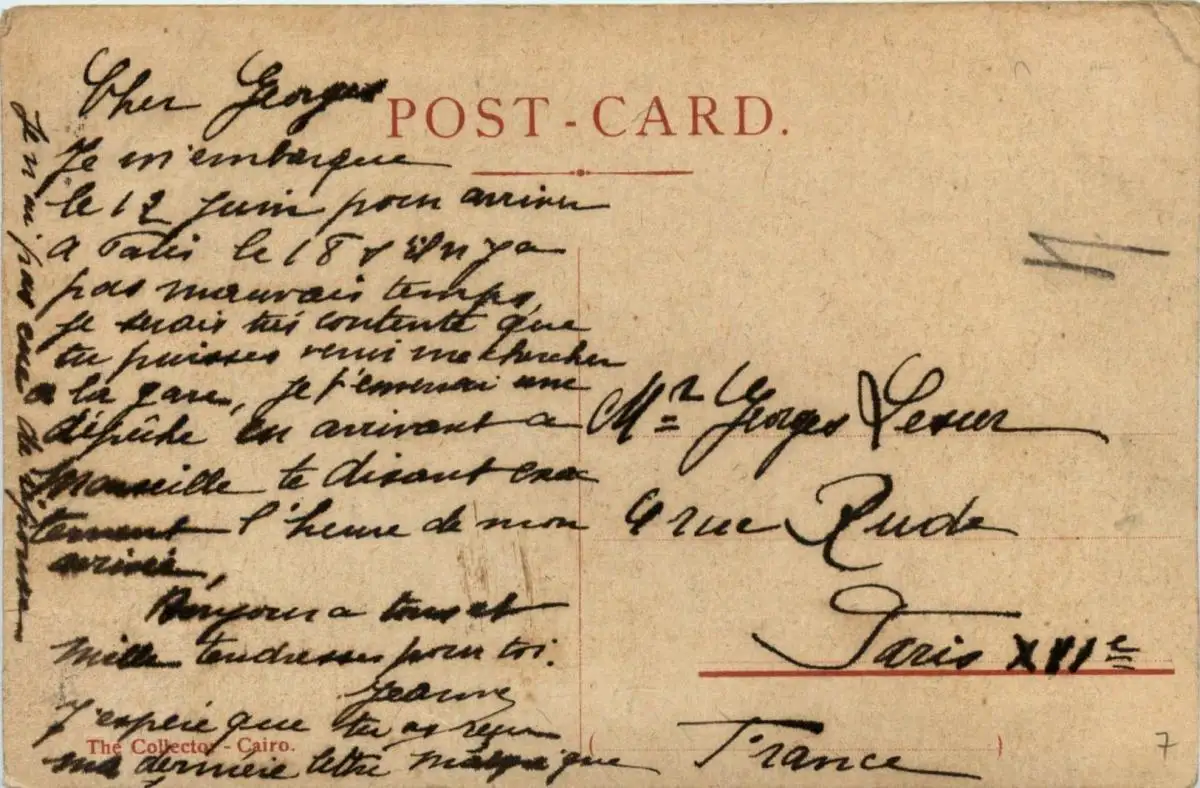 POST-CARD.
Cher Georges
Je m'embarque
le 12 Juin pour arriver
a Paris le 18 s'il n'y a
pas mauvais temps,
je serais très contente que
tu puisses venir me chercher
a la gare, je t'enverrai une
dépêche en arrivant a
Marseille te disant exac
tement l'heure de mon
arrivée,
Bonjour a tous et
mille tendresses pour toi.
Jeanne
J'espère que tu as reçu
ma dernière lettre que
Je n'ai pas eue de réponse
The Collector - Cairo.
Mr Georges
4 rue Rude
Paris XVIe
France
7